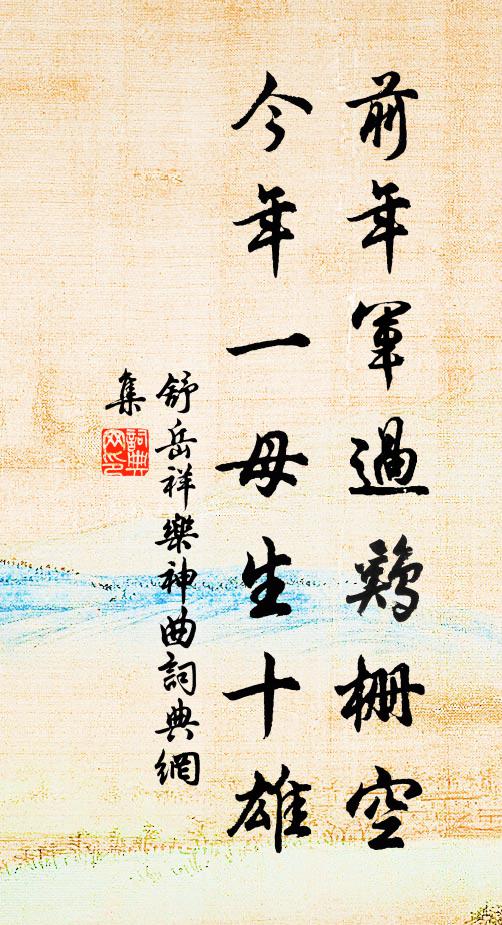 前年軍過鷄栅空
今年一母生十雄
舒岳祥樂神曲詞典網
集
詞典网印